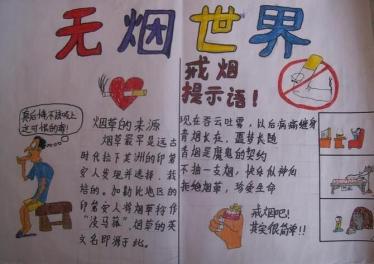 无烟世界
真后悔不该吸上
这可恨的烟!
烟草的来源
烟草最早是远古
时代拉丁美洲的印第
安人发现并选择、栽
培的。加勒比地区的
印第安人将烟草称作
“淡马菰”,烟草的英
文名即源于此。
戒烟
提示语!
现在吞云吐雾,以后病痛缠身
青烟长在,噩梦长随
青烟是魔鬼的契约
不抽一支烟,快乐似神仙
拒绝烟草,珍爱生命
戒烟吧!
其实很简单!!